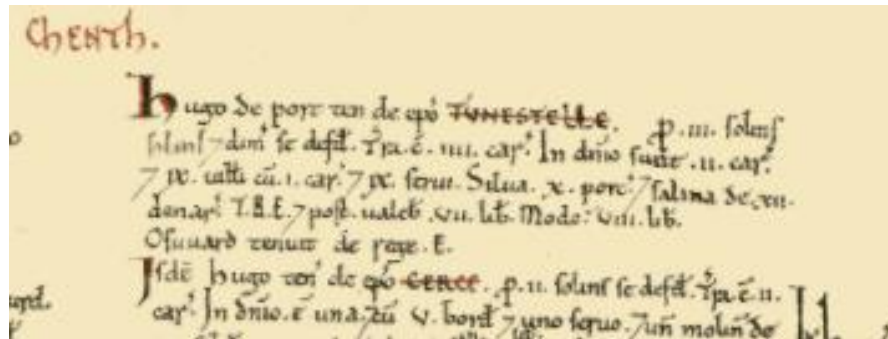 Chenth.
Hugo de port ten de ep̄o TUNESTELLE. p. iii. solins
solins 7 dim̄ se defd̄. Tr̄a. ē. iiii. car̄. In dn̄io sunt. ii. car̄.
7 ix. uilli cū. i. car̄. 7 ix. serui. Silua. x. porc̄. 7 salina de. xii.
denar̄. T.R.E. 7 post ualeb̄. vii. lib̄. Modo: viii. lib̄.
Osuuard tenuit de rege. E.
Isdē hugo ten̄ de ep̄o CERCE. p. ii. solins se defd̄. Tr̄a. ē. ii.
car̄. In dn̄io. ē una. cū v. bord̄ 7 uno seruo. 7 un̄ molin̄ de